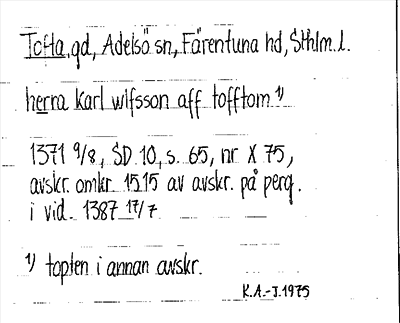 Tofta, gd, Adelsö sn, Färentuna hd, Sthlm. l.
herra karl wlfsson aff tofftom 1)
1371 9/8, SD 10, s. 65, nr X 75,
avskr. omkr 1515 av avskr. på perg.
i vid. 1387 17/7
1) topten i annan avskr.
K.A.-J. 1975